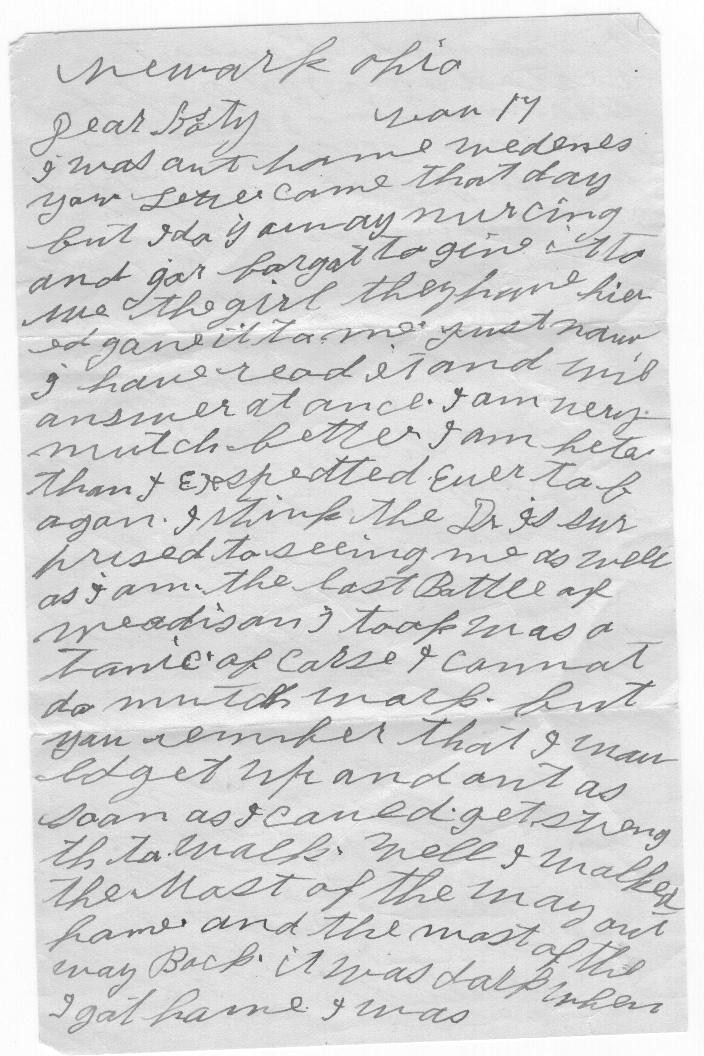 Newark Ohio
Dear Nov 17
I was out home wedenes
your Letter came that day
but Ida is away nurcing
and gor forgot to give it to
me the girl they have hier
ed gave it to me just now
I have read it and will
answer at once. I am very
mutch better I am beter
than I Exspedtted Ever to b
agan. I think the Dr is sur
prised to seeing me as well
as i am. the last Battle of
meadisan I took was a
tonic. of Corse I cannot
do mutch work. but
you remmber that I wou
ld get up and out as
soon as I could get streng
th to walk. Well I walked
the Most of the way out
home and the most of the
way Back. it was dark when
I got home I was